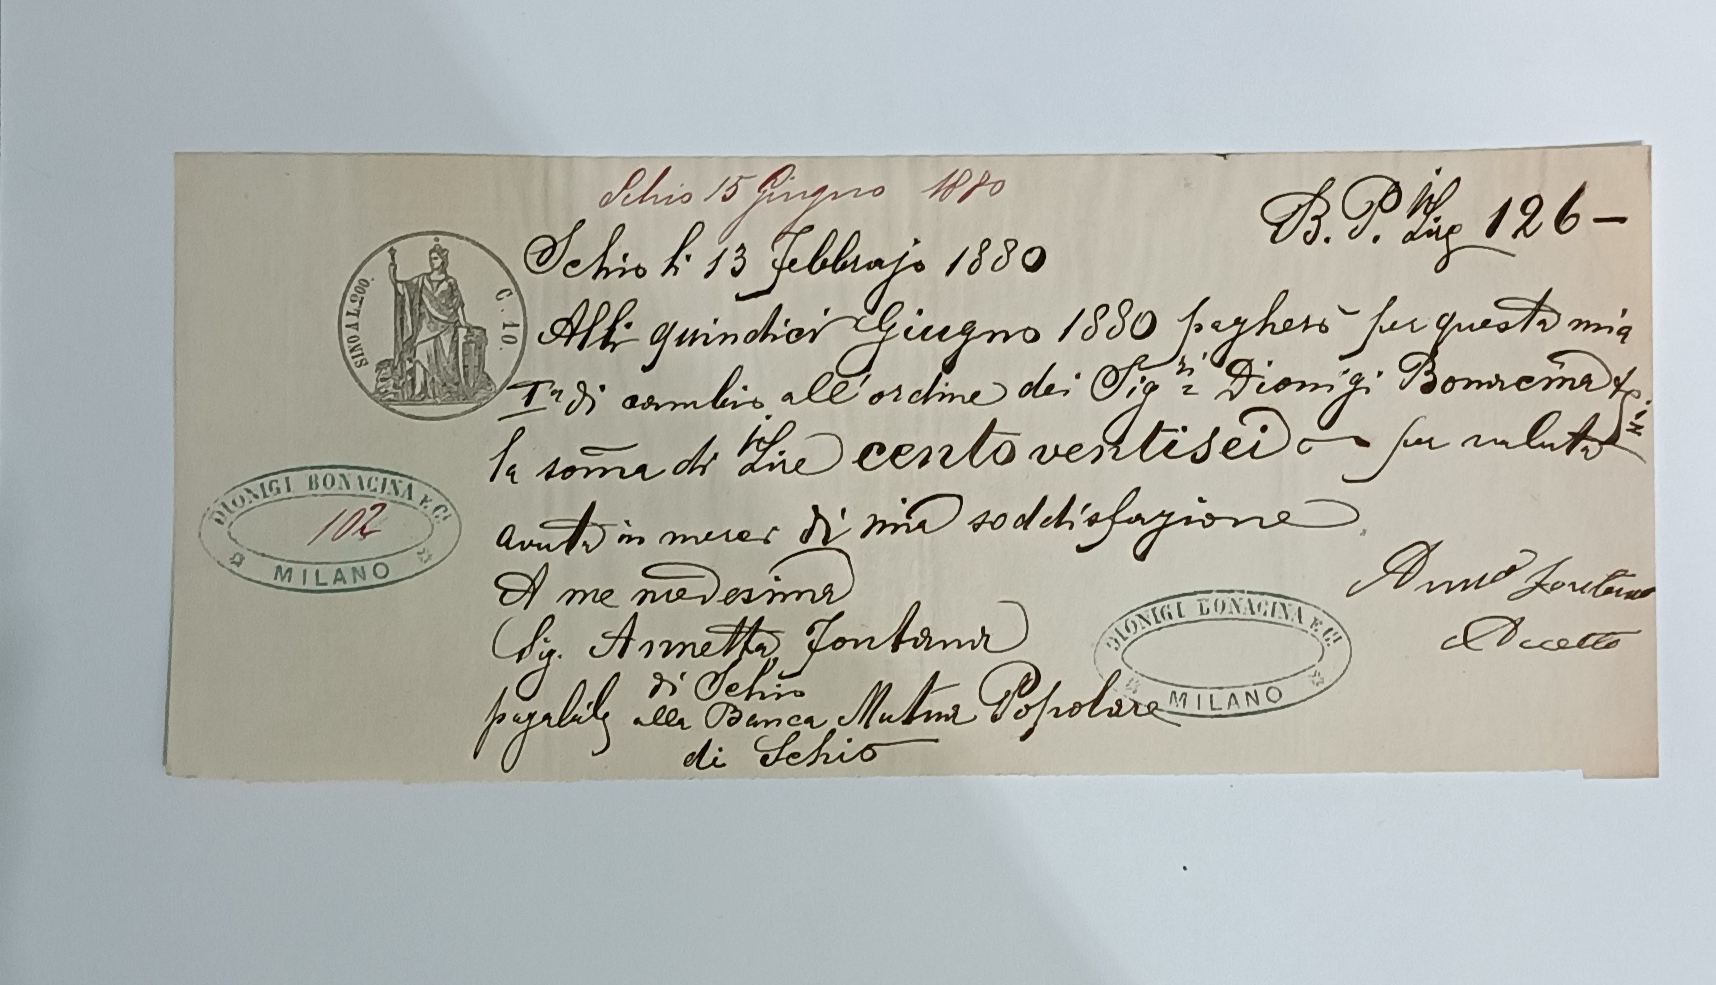 Schio 15 Giugno 1880
B. P. it. Lire 126 —
Schio li 13 Febbrajo 1880
SINO A L. 200.
C. 10.
Alli quindici Giugno 1880 pagherò per questa mia
Iª di cambio all'ordine dei Sigri Dionigi Bonacina & Ci
la soma di it Lire centoventisei per valuta
avuta in merci di mia soddisfazione
DIONIGI BONACINA E Ci
102
MILANO
A me medesima
Sig. Annetta Fontana
di Schio
pagabile alla Banca Mutua Popolare
di Schio
Fontana
Accetto
DIONIGI BONACINA E Ci
MILANO